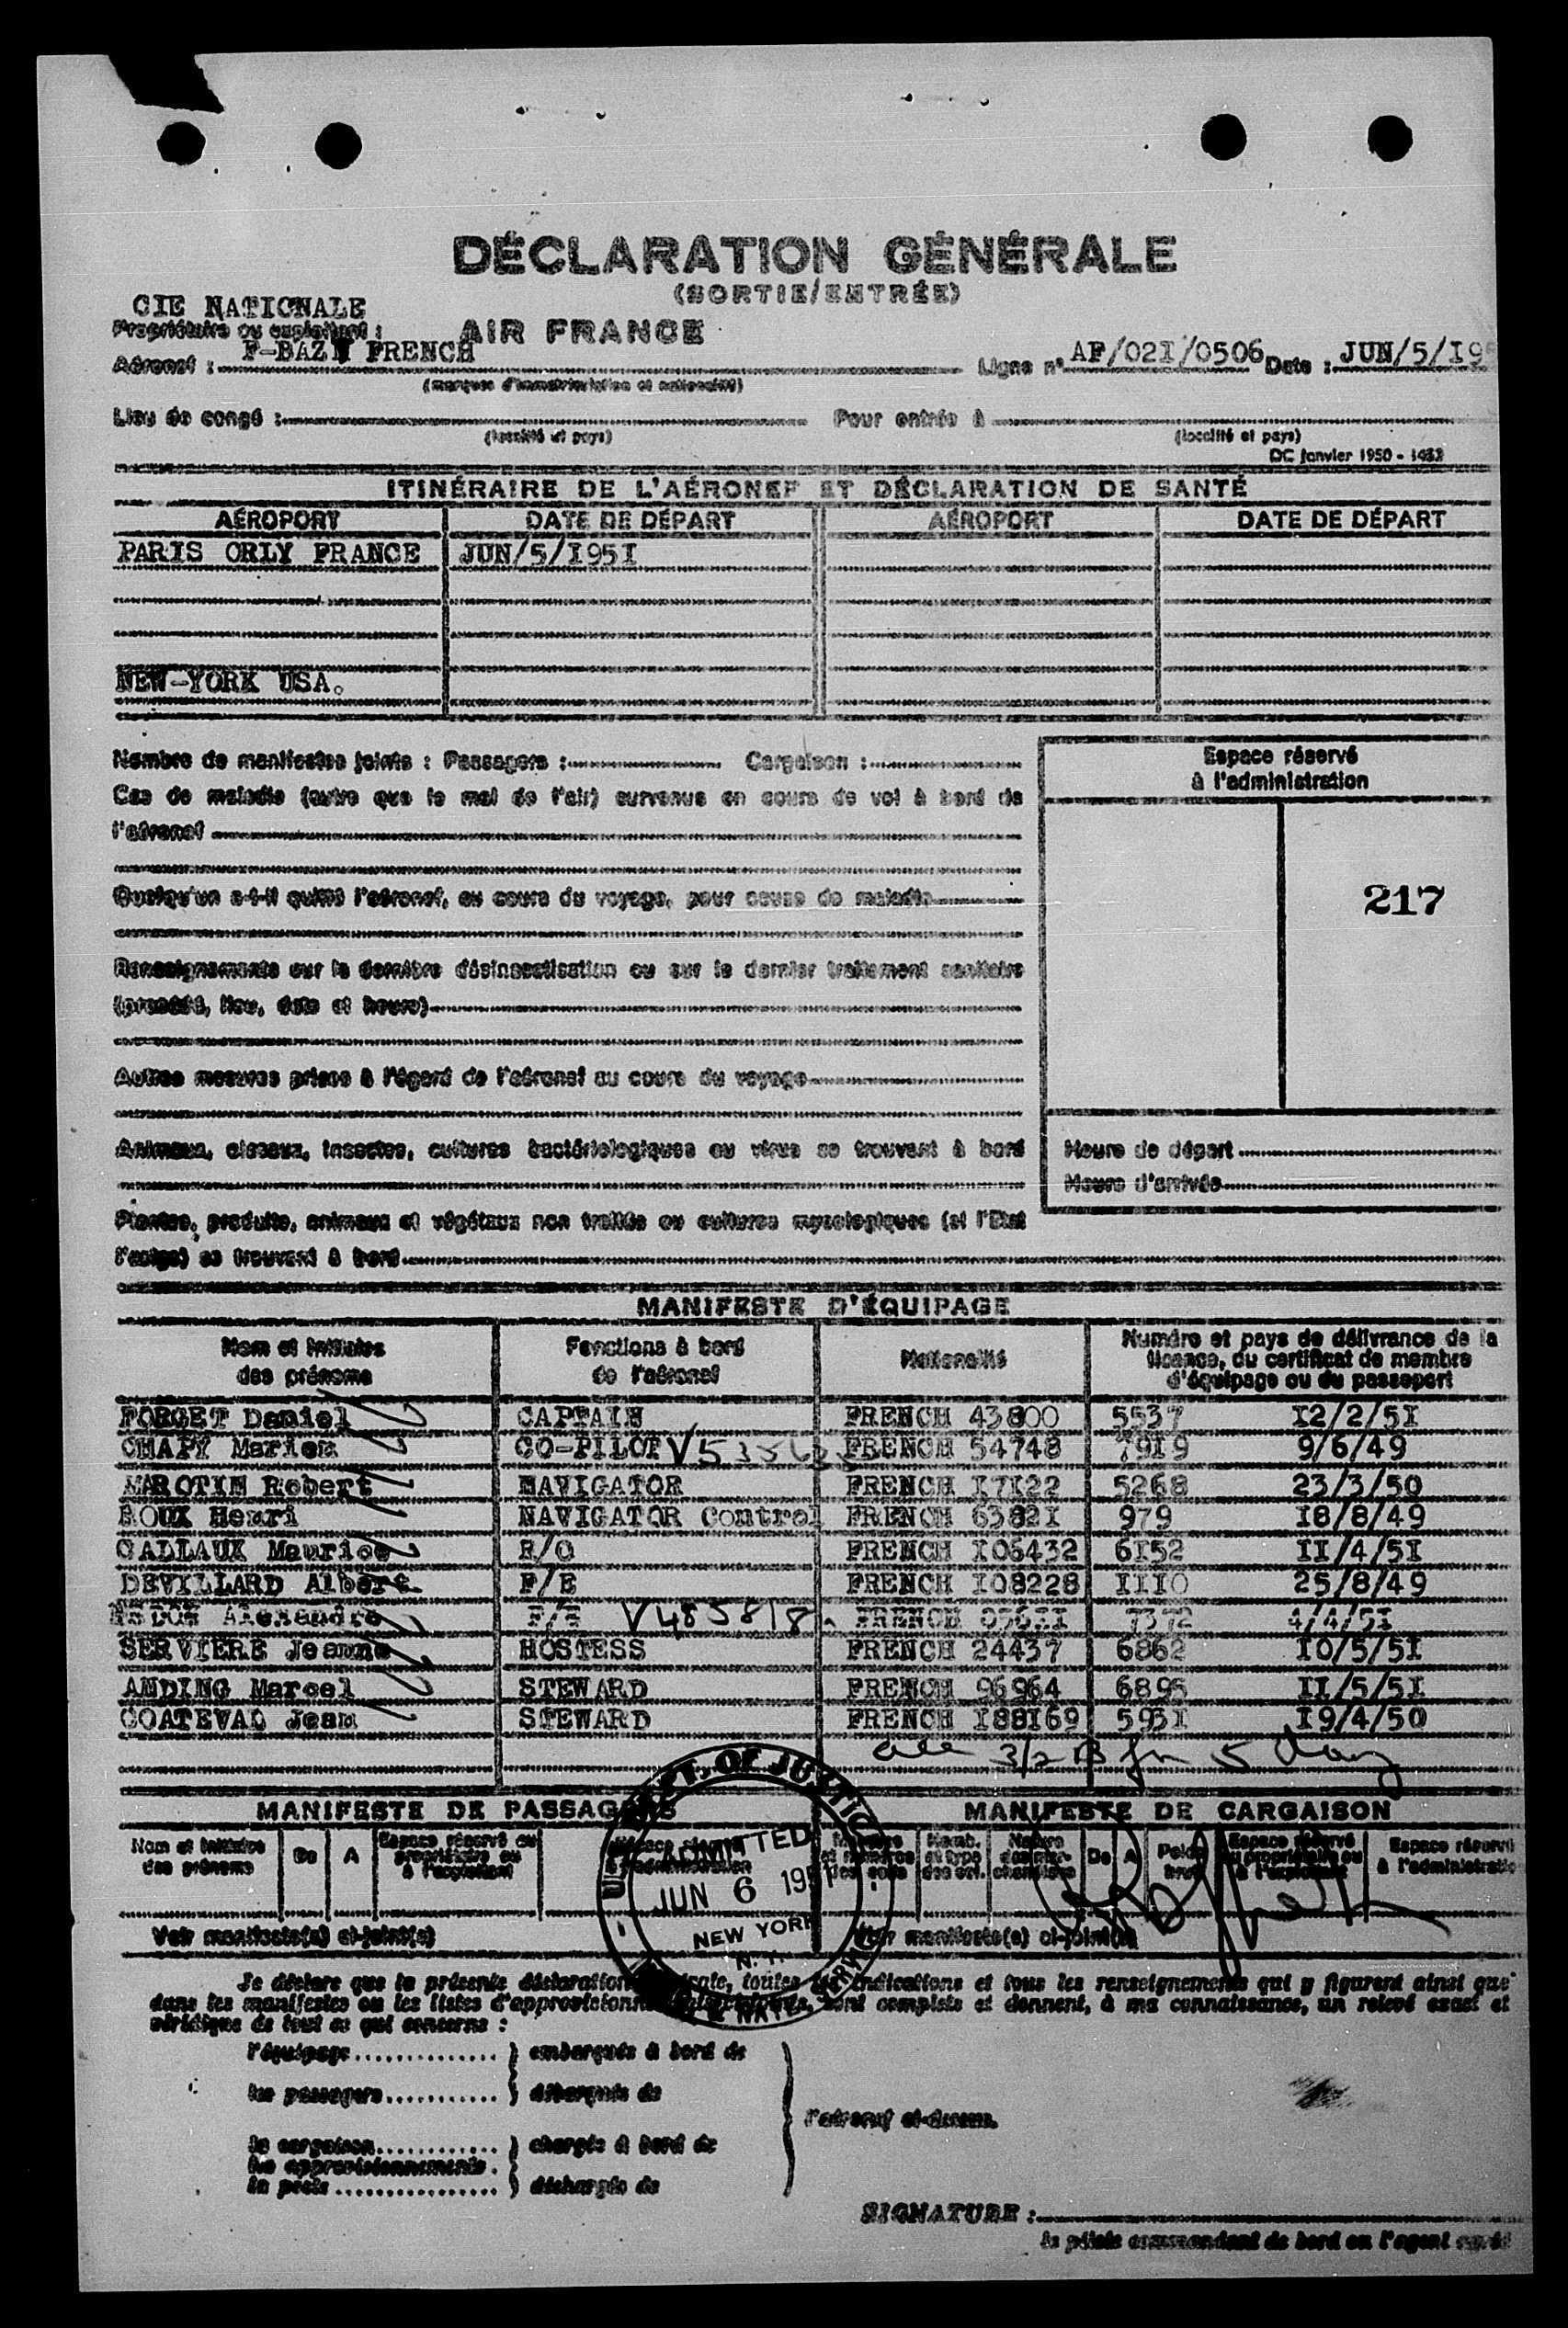 DÉCLARATION GÉNÉRALE
(SORTIE/ENTRÉE)
CIE NATIONALE
Propriétaire ou exploitant : AIR FRANCE
Aéronef : F-BAZN FRENCH Ligne n° AF/02I/0506 Date : JUN/5/I95
(marques d'immatriculation et nationalité)
Lieu de congé : Pour entrée à
(localité et pays) (localité et pays)
DC Janvier 1950 - 1433
ITINÉRAIRE DE L'AÉRONEF ET DÉCLARATION DE SANTÉ
AÉROPORT DATE DE DÉPART AÉROPORT DATE DE DÉPART
PARIS ORLY FRANCE JUN/5/I95I
NEW-YORK USA.
Nombre de manifestes joints : Passagers : Cargaison :
Espace réservé
à l'administration
Cas de maladie (autre que le mal de l'air) survenus en cours de vol à bord de
l'aéronef
217
Quelqu'un a-t-il quitté l'aéronef, au cours du voyage, pour cause de maladie
Renseignements sur la dernière désinsectisation ou sur le dernier traitement sanitaire
(procédé, lieu, date et heure)
Autres mesures prises à l'égard de l'aéronef au cours du voyage
Animaux, oiseaux, insectes, cultures bactériologiques ou virus se trouvant à bord
Heure de départ
Heure d'arrivée
Plantes, produits, animaux et végétaux non traités ou cultures mycologiques (si l'Etat
l'exige) se trouvant à bord
MANIFESTE D'ÉQUIPAGE
Nom et initiales
des prénoms
Fonctions à bord
de l'aéronef
Nationalité
Numéro et pays de délivrance de la
licence, du certificat de membre
d'équipage ou du passeport
FORGET Daniel CAPTAIN FRENCH 43800 5537 I2/2/5I
CHAFY CO-PILOT FRENCH 54748 79I9 9/6/49
MAROTIN Robert NAVIGATOR FRENCH I7I22 5268 23/3/50
ROUX Henri NAVIGATOR Control FRENCH 6382I 979 I8/8/49
CALLAUX Maurice R/O FRENCH I06432 6I52 II/4/5I
DEVILLARD Albert F/E FRENCH I08228 III0 25/8/49
Alexandre F/E V485818 FRENCH 7372 4/4/5I
SERVIERE Jeanne HOSTESS FRENCH 24437 6862 I0/5/5I
ANDING Marcel STEWARD FRENCH 96964 6895 II/5/5I
COATEVAL Jean STEWARD FRENCH I88I69 593I I9/4/50
all 3/2 B for 5 days
MANIFESTE DE PASSAGERS MANIFESTE DE CARGAISON
Nom et initiales
des prénoms
De A
Espace réservé au
propriétaire ou
à l'exploitant
De A
Espace réservé
au propriétaire ou
à l'exploitant
Espace réservé
à l'administratio
ADMITTED
JUN 6 1951
NEW YORK
N. Y.
Voir manifeste(s) ci-joint(s) Voir manifeste(s) ci-joint(s)
Je déclare que la présente déclaration toutes les indications et tous les renseignements qui y figurent ainsi que
dans les manifestes ou les listes sont complets et donnent, à ma connaissance, un relevé exact et
véridique de tout ce qui concerne :
l'équipage } embarqués à bord de
les passagers } débarqués de
l'aéronef ci-dessus.
la cargaison } chargés à bord de
les approvisionnements
le poste } déchargés de
SIGNATURE :
le pilote commandant de bord ou l'agent